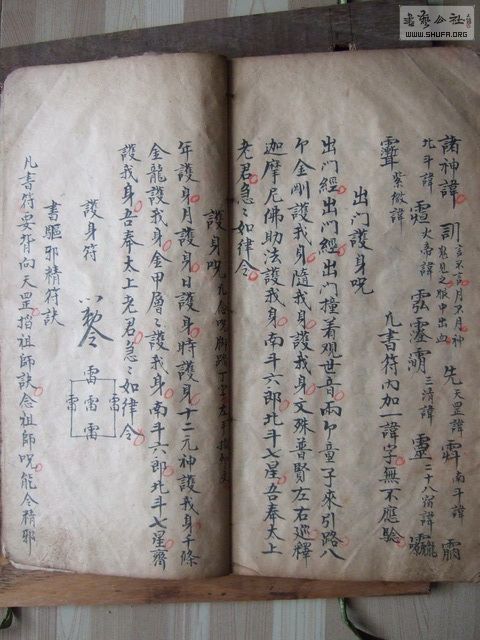 書藝公社
WWW.SHUFA.ORG
諸神諱 言不言 月不月神 鬼見之眼中出血 先 天罡諱 南斗諱
北斗諱 火帝諱 三清諱 二十八宿諱
紫微諱 凡書符內加一諱字無不應驗
出门護身呪
出门經出门經出门撞着观世音兩卬童子來引路八
卬金剛護我身随我身護我身文殊普賢左右廵釋
迦摩尼佛助法護我身南斗六郎北斗七星吾奉太上
老君急〻如律令
護身呪
年護身月護身日護身時護身十二元神護我身千條
金龍護我身金甲層〻護我身南斗六郎北斗七星齊
護我身吾奉太上老君急〻如律令
護身符
雷
雷 雷 雷
雷
書驅邪精符訣
凡書符要符向天罡掐祖師訣念祖師呪能令精邪